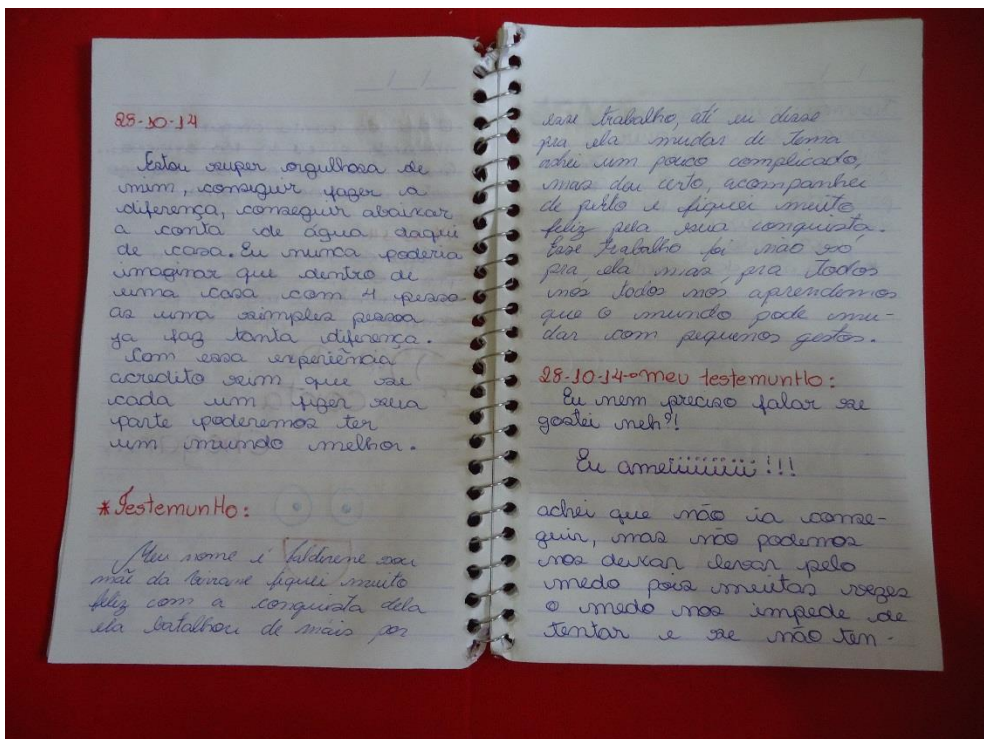 28-10-14
Estou super orgulhosa de
mim, conseguir fazer a
diferença, conseguir abaixar
a conta de água daqui
de casa. Eu nunca poderia
imaginar que dentro de
uma casa com 4 pesso
as uma simples pessoa
ja faz tanta diferença.
Com essa experiência
acredito sim que se
cada um fizer sua
parte poderemos ter
um mundo melhor.
* Testemunho:
Meu nome é sou
mãe da fiquei muito
feliz com a conquista dela
ela batalhou de mais por
esse trabalho, até eu disse
pra ela mudar de tema
achei um pouco complicado,
mas deu certo, acompanhei
de perto e fiquei muito
feliz pela sua conquista.
Esse trabalho foi não só
pra ela mas pra todos
nós todos nós aprendemos
que o mundo pode mu-
dar com pequenos gestos.
28-10-14 meu testemunho:
Eu nem preciso falar se
gostei neh?!
Eu ameiiiiiiiii!!!
achei que não ia conse-
guir, mas não podemos
nos deixar levar pelo
medo pois muitas vezes
o medo nos impede de
tentar e se não ten-